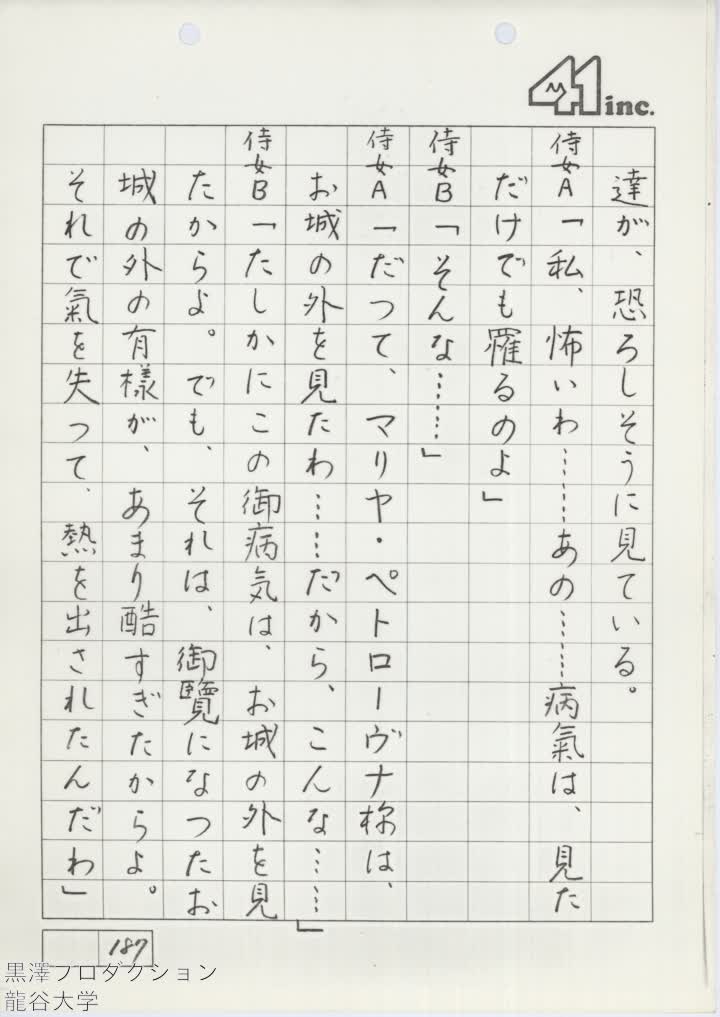 41 inc.
達が、恐ろしそうに見ている。
侍女A「私、怖いわ………あの……病氣は、見た
だけでも罹るのよ」
侍女B「そんな……」
侍女A「だつて、マリヤ・ペトローヴナ様は、
お城の外を見たわ……だから、こんな……」
侍女B「たしかにこの御病気は、お城の外を見
たからよ。でも、それは、御覽になつたお
城の外の有様が、あまり酷すぎたからよ。
それで氣を失つて、熱を出されたんだわ」
187
黒澤プロダクション
龍谷大学